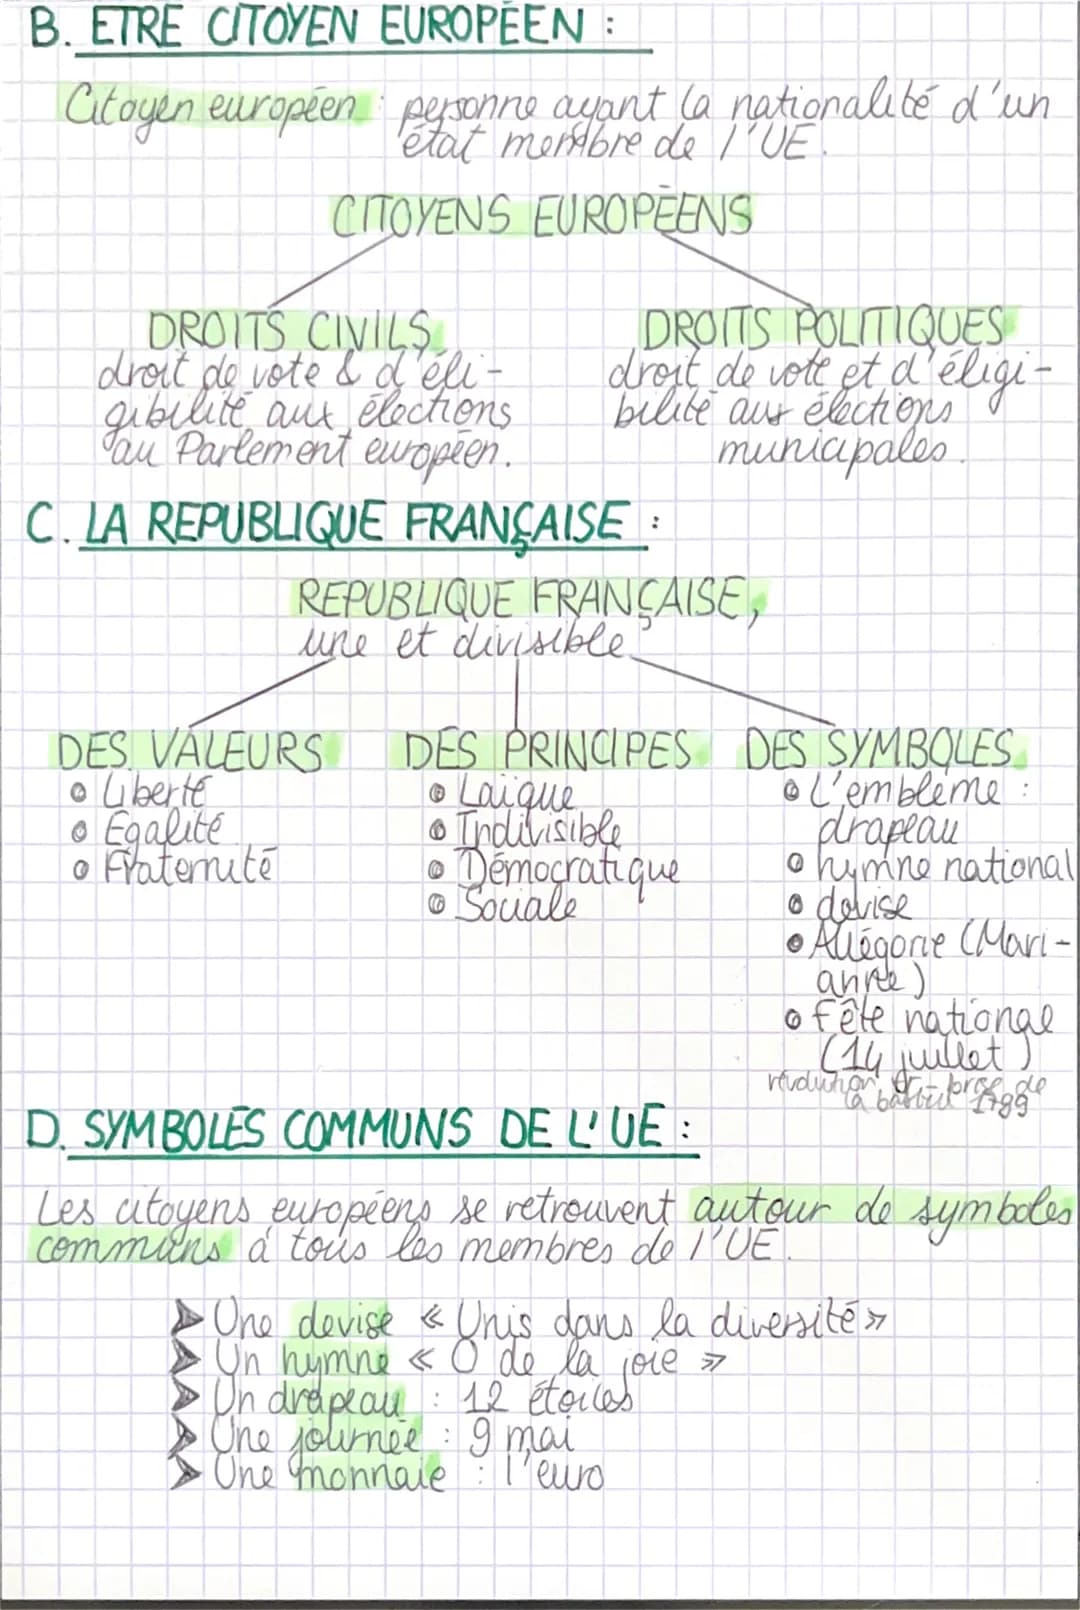 B. ETRE CITOYEN EUROPÉEN :
Citoyen européen : personne ayant la nationalité d'un
état membre de l'UE.
CITOYENS EUROPÉENS
DROITS CIVILS
droit de vote & d'éli-
gibilité aux élections
au Parlement européen.
DROITS POLITIQUES
droit de vote et d'éligi-
bilité aux élections
municipales.
C. LA REPUBLIQUE FRANÇAISE :
REPUBLIQUE FRANÇAISE,
une et divisible
DES VALEURS
Liberté
Egalité
Fraternité
DES PRINCIPES
Laïque
Indivisible
Démocratique
Sociale
DES SYMBOLES
L'emblème :
drapeau
hymne national
devise
Allégorie (Mari-
anne)
Fête nationale
(14 juillet)
révolution fr - prise de
la bastille 1789
D. SYMBOLES COMMUNS DE L'UE :
Les citoyens européens se retrouvent autour de symboles
communs à tous les membres de l'UE.
Une devise « Unis dans la diversité »
Un hymne « O de la joie »
Un drapeau : 12 étoiles
Une journée : 9 mai
Une monnaie : l'euro